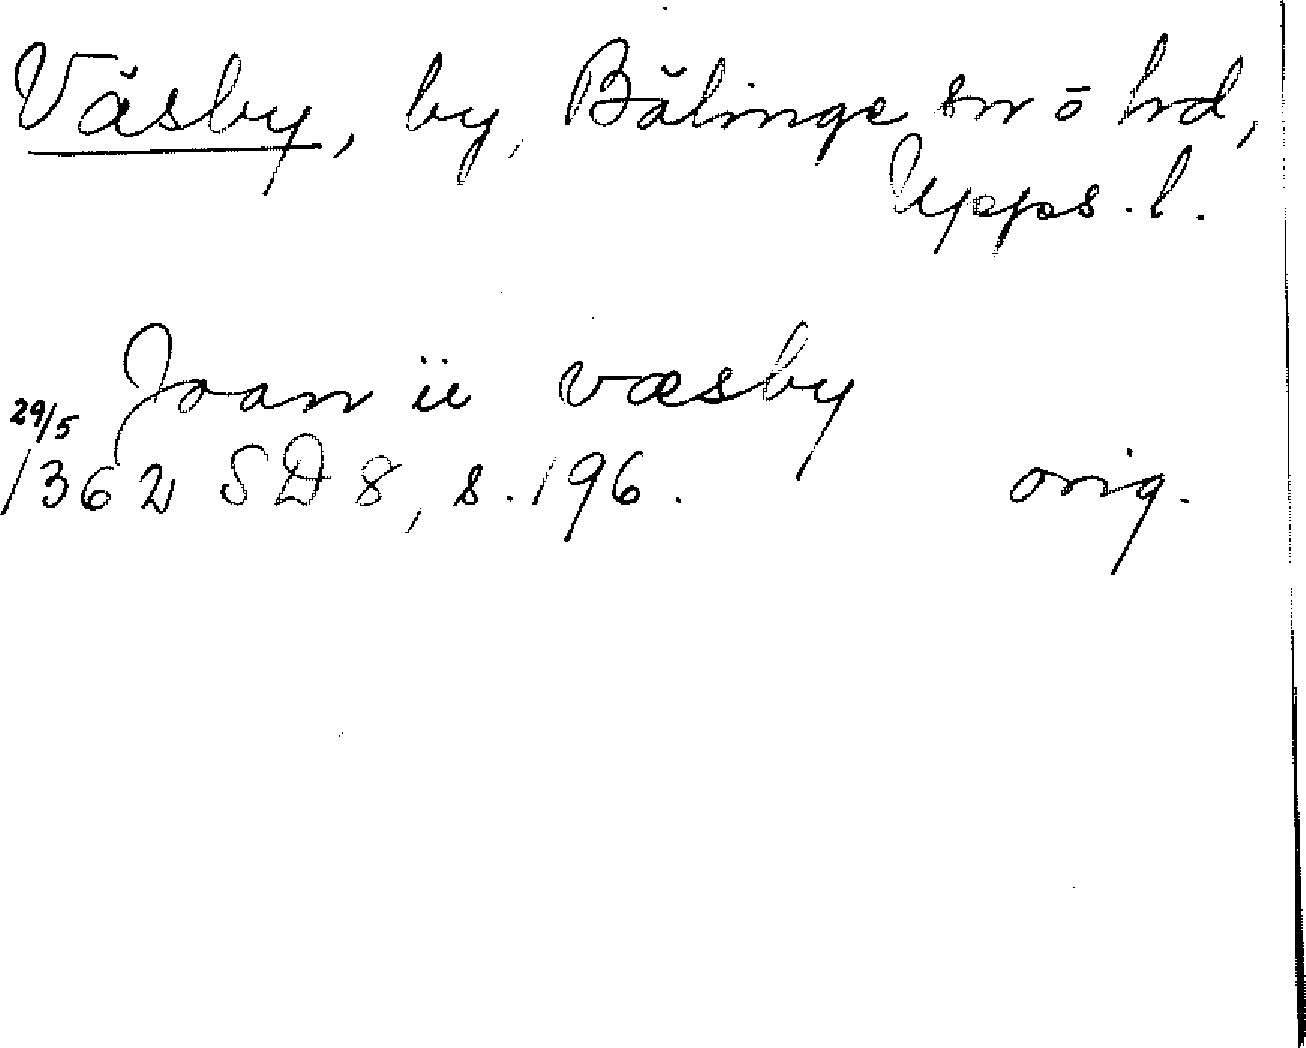 Väsby, by, Bälinge sn o hd,
Upps. l.
Joan ii væsby
29/5
1362 SD 8, s. 196. orig.